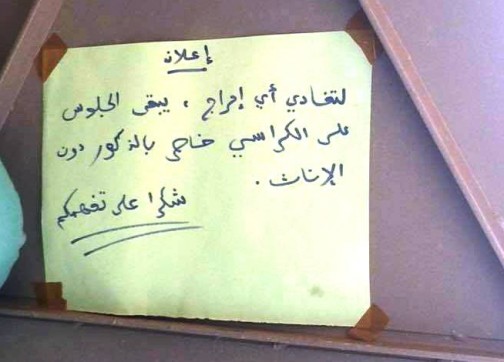 إعلان
لتفادي أي إحراج ، يبقى الجلوس
على الكراسي خاص بالذكور دون
الإناث .
شكرا على تفهمكم